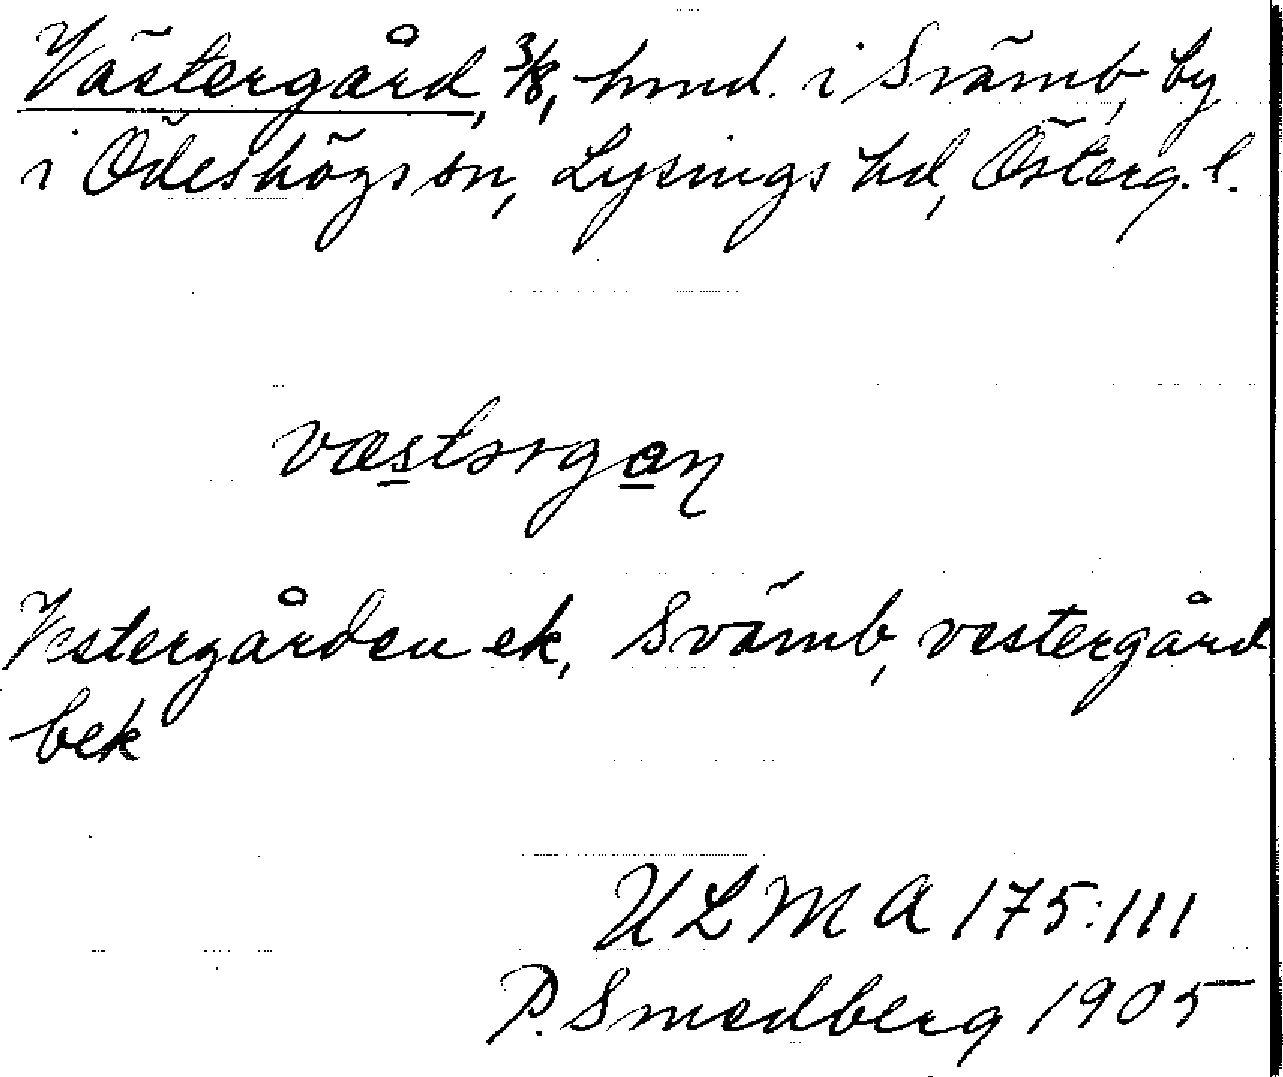 Västergård, 3/8, hmd. i Svämb, by
i Ödeshögs sn, Lysings hd, Österg. l.
Vestergården ek, Svämb, vestergård
bek
ULMA 175:111
P. Smedberg 1905